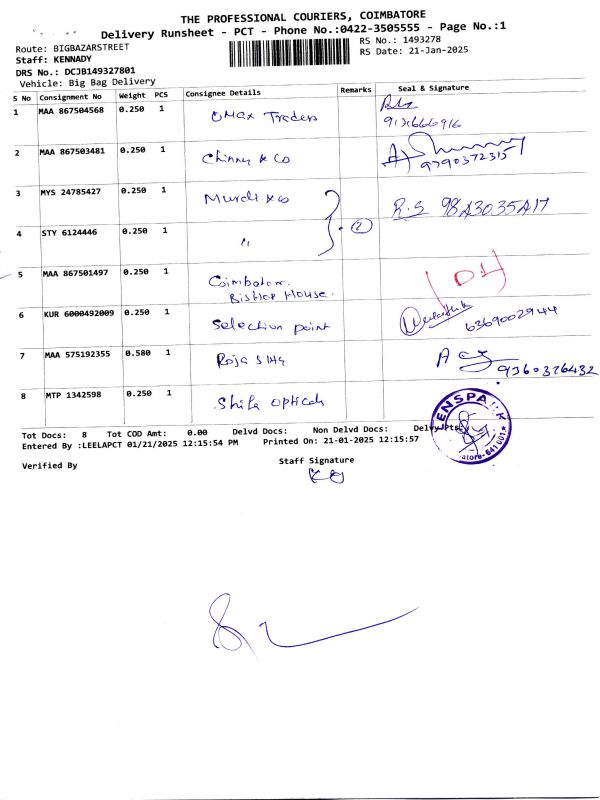 THE PROFESSIONAL COURIERS, COIMBATORE
Delivery Runsheet - PCT - Phone No.:0422-3505555 - Page No.:1
Route: BIGBAZARSTREET
RS No.: 1493278
Staff: KENNADY
RS Date: 21-Jan-2025
DRS No.: DCJB149327801
Vehicle: Big Bag Delivery
S No Consignment No Weight PCS Consignee Details Remarks Seal & Signature
1 MAA 867504568 0.250 1 Omax Traders
2 MAA 867503481 0.250 1 Chinny & Co 9790372315
3 MYS 24785427 0.250 1 Murali & co R.S 9843035417
4 STY 6124446 0.250 1 " 2
5 MAA 867501497 0.250 1 Coimbatore.
Bishop House.
6 KUR 6000492009 0.250 1 Selection point 6369002944
7 MAA 575192355 0.580 1 Roja 9360376432
8 MTP 1342598 0.250 1 Shifa opticals
Tot Docs: 8 Tot COD Amt: 0.00 Delvd Docs: Non Delvd Docs:
Entered By :LEELAPCT 01/21/2025 12:15:54 PM Printed On: 21-01-2025 12:15:57
Verified By Staff Signature